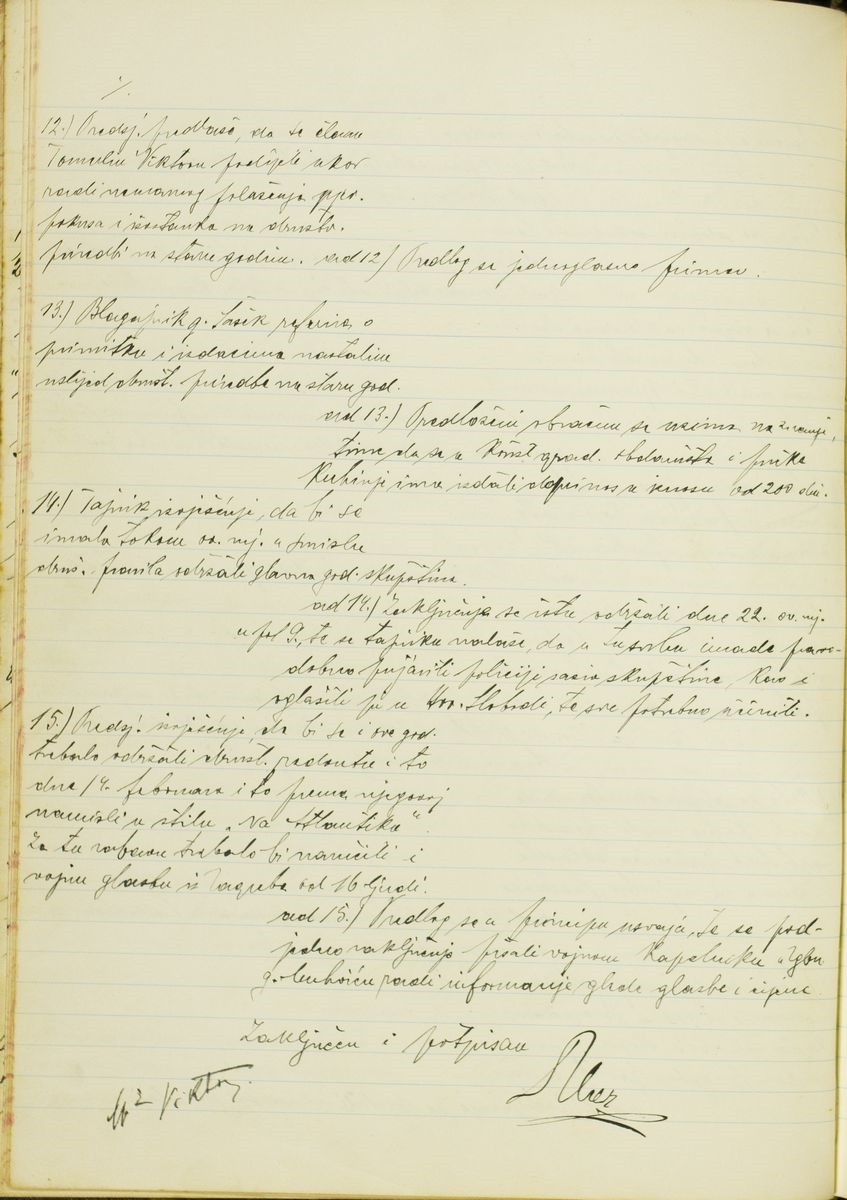 12.) Predsj. predlaže, da se članu
Viktoru podijeli ukor
radi neuranog polaženja
pokusa i izostanka na društv.
priredbi na stare godine. ad 12) Predlog se jednoglasno prima.
13.) Blagajnik g. Šašek referira o
primitku i izdacima nastalim
uslijed društ. priredbe na staru god.
ad 13.) Predloženi obračun se uzima na znanje,
time da se u korist grad. i
ima izdati doprinos u iznosu od 200 din.
14.) Tajnik izvješćuje, da bi se
imala tokom ov. mj. u smislu
druš. pravila održati glavna god. skupština.
ad 14.) Zaključuje se istu održati dne 22. ov. mj.
u pol 9., te se tajniku nalaže, da u tu svrhu imade pravo-
dobno prijaviti policiji saziv skupštine kao i
oglasiti ju u Hrv. Slobodi, te sve potrebno učiniti.
15.) Predsj. izvješćuje, da bi se i ove god.
trebalo održati društ. redoutu i to
dne 14. februara i to prema njegovoj
namisli u stilu „Na Atlantiku“.
Za tu zabavu trebalo bi naručiti i
vojnu glasbu iz Zagreba od 16 ljudi.
ad 15.) Predlog se u principu usvaja, te se pod-
jedno zaključuje pisati vojnom kapelniku u Zgbu
g. radi informacije glede glasbe i cijene.
Zaključen i potpisan
Viktor